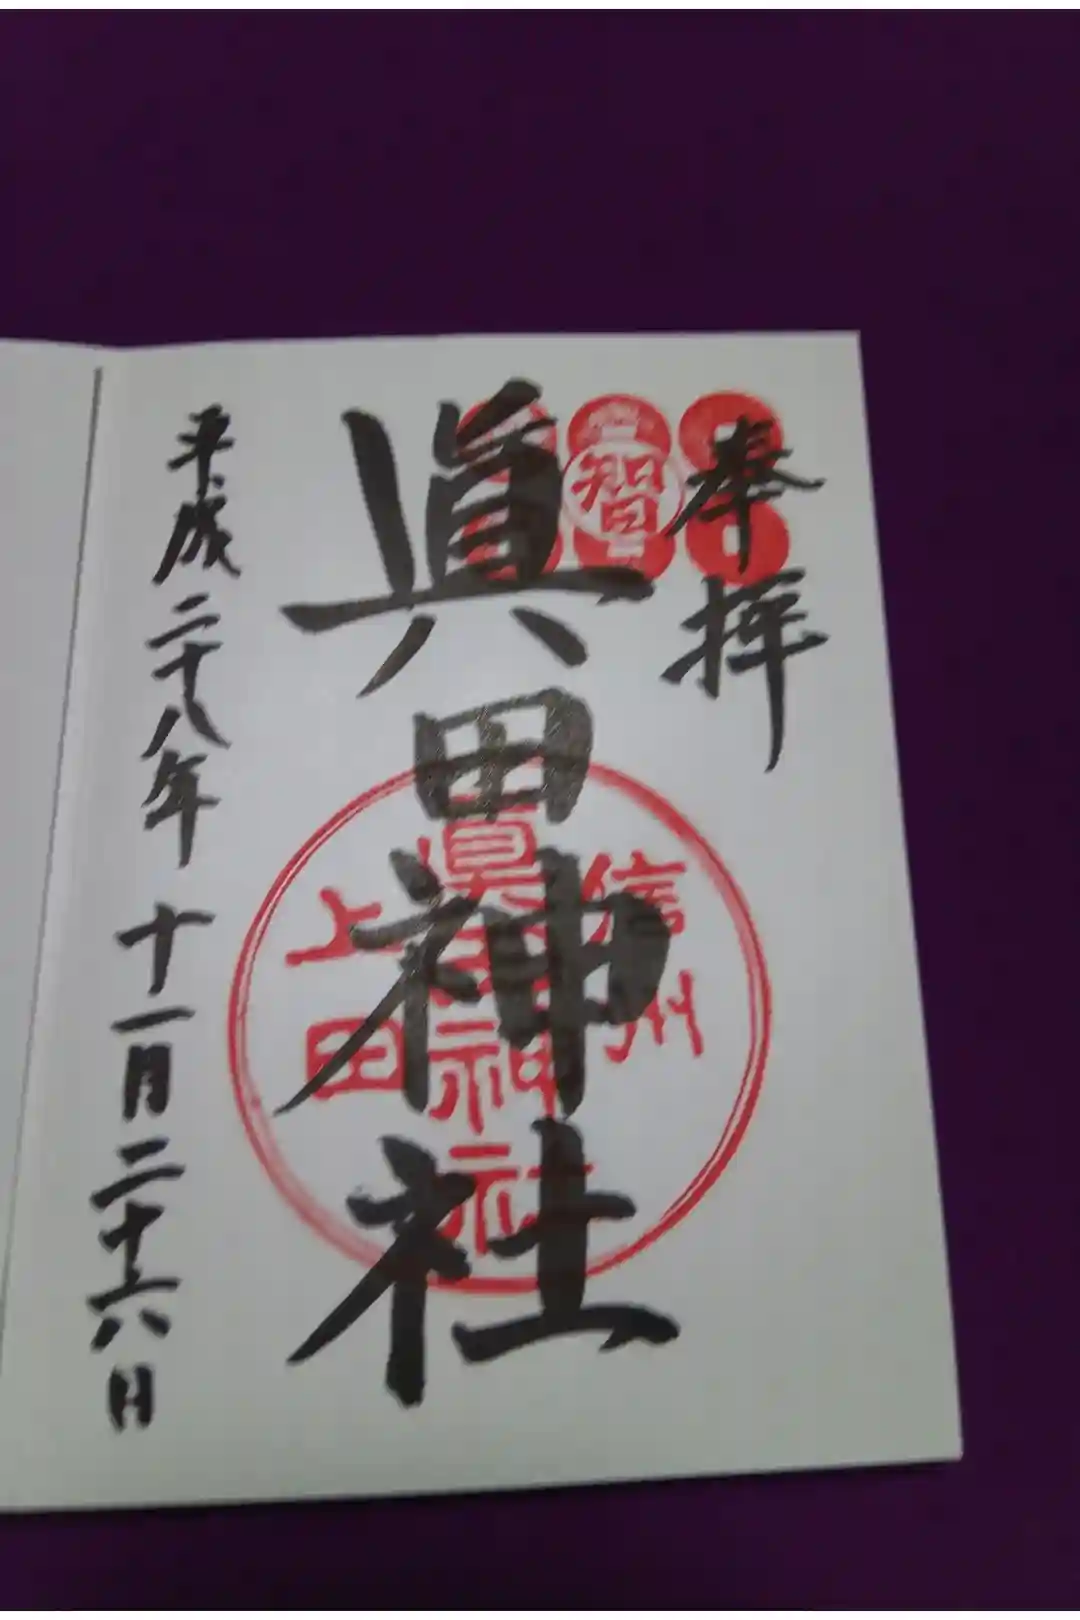 奉拝
智
眞田神社
信州
眞田神社
上田
平成二十八年 十一月二十六日